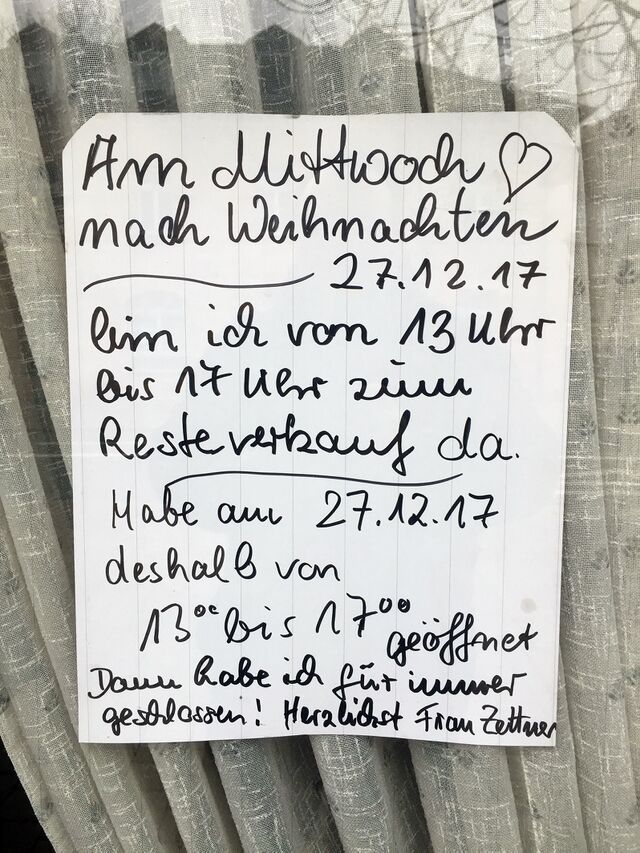 Am Mittwoch ♡
nach Weihnachten
27.12.17
bin ich von 13 Uhr
bis 17 Uhr zum
Resteverkauf da.
Habe am 27.12.17
deshalb von
13⁰⁰ bis 17⁰⁰ geöffnet
Dann habe ich für immer
geschlossen! Herzlichst Frau Zettner